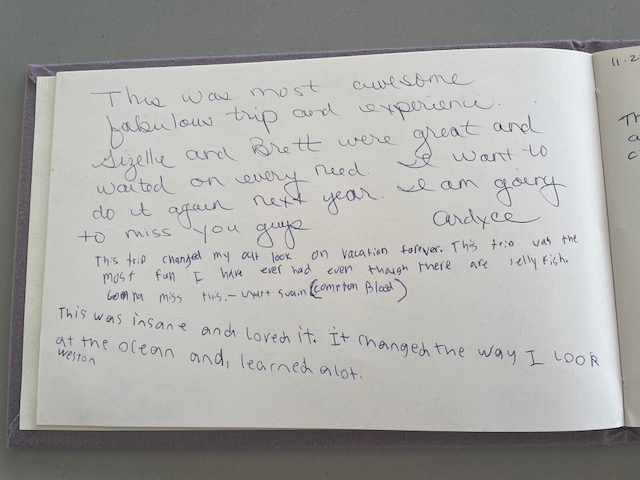 This was most awesome
fabulous trip and experience.
Gizelle and Brett were great and
waited on every need. I want to
do it again next year. I am going
to miss you guys Cardyce
This trip changed my out look on vacation forever. This trip was the
most fun I have ever had even though there are Jelly fish.
Gonna miss this.- Wyatt Swain (Compton Blood)
This was insane and loved it. It changed the way I look
at the ocean and, learned alot.
Weston
11.2
Th
a
c